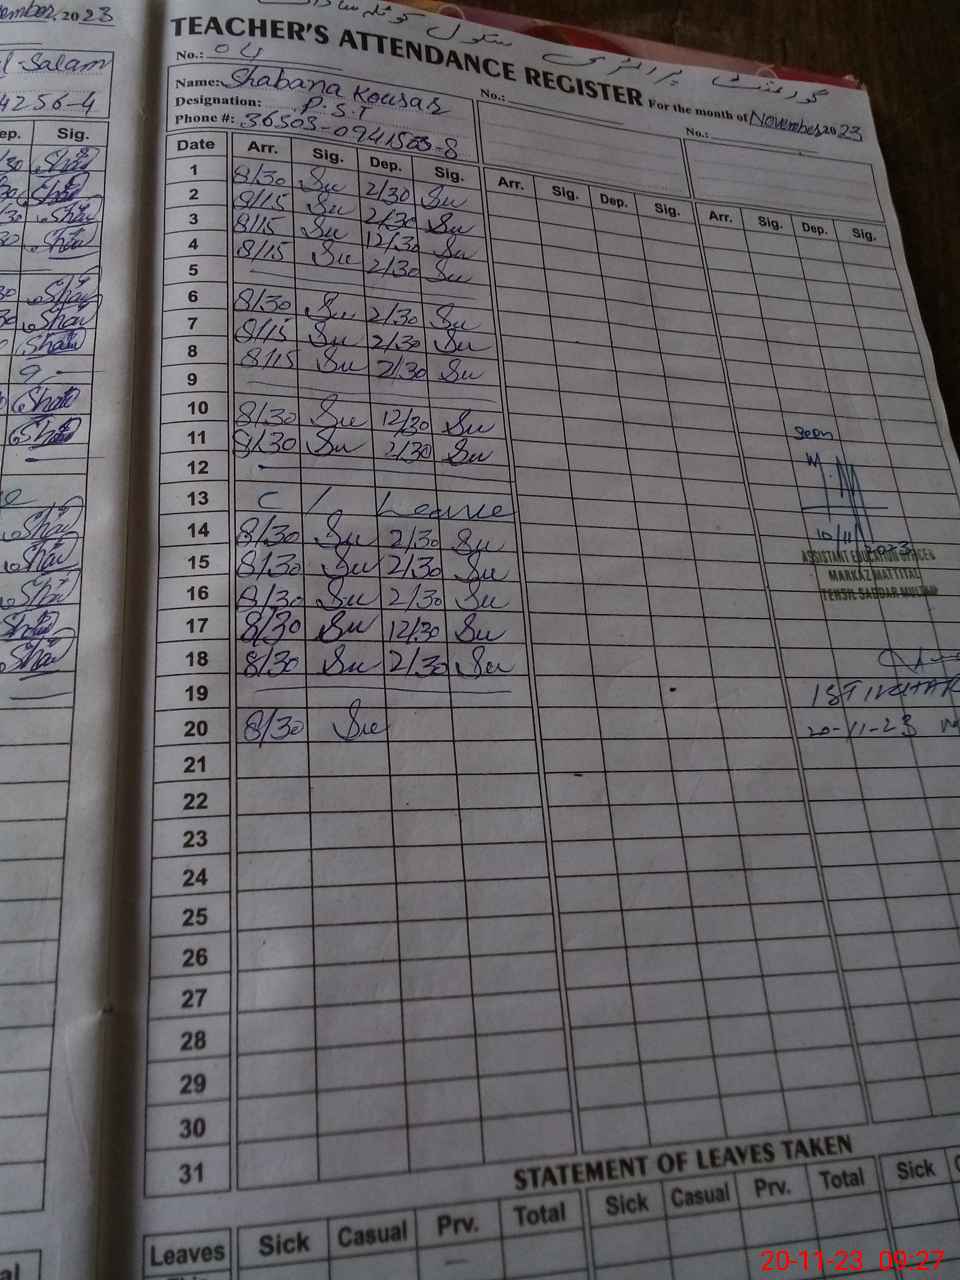 ember 2023
l-Salam
4256-4
ep. Sig.
گورنمنٹ پرائمری سکول
TEACHER'S ATTENDANCE REGISTER For the month of November 2023
No.: 04
Name: Shabana Kousar
Designation: P.S.T
Phone #: 36303-0941503-8
No.:
No.:
Date Arr. Sig. Dep. Sig. Arr. Sig. Dep. Sig. Arr. Sig. Dep. Sig.
1 8/30 Su 2/30 Su
2 8/15 Su 2/30 Su
3 8/15 Su 12/30 Su
4 8/15 Su 2/30 Su
5
6 8/30 Su 2/30 Su
7 8/15 Su 2/30 Su
8 8/15 Su 2/30 Su
9
10 8/30 Su 12/30 Su
11 8/30 Su 2/30 Su
12
13 C / Leave
14 8/30 Su 2/30 Su
15 8/30 Su 2/30 Su
16 8/30 Su 2/30 Su
17 8/30 Su 12/30 Su
18 8/30 Su 2/30 Su
19
20 8/30 Su
21
22
23
24
25
26
27
28
29
30
31
Seen
10/11/2023
ASSISTANT EDUCATION OFFICER
MARKAZ MATTITAL
TEHSIL SADDAR MULTAN
20-11-23
STATEMENT OF LEAVES TAKEN
Leaves Sick Casual Prv. Total Sick Casual Prv. Total Sick
20-11-23 09:27